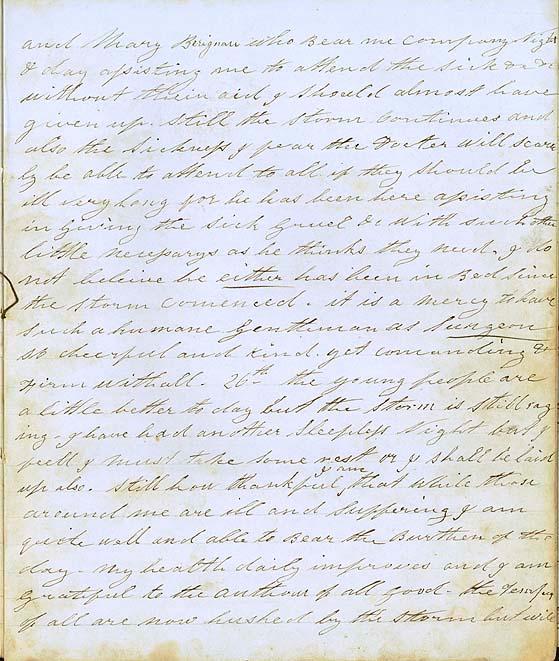 and Mary Berignan who Bear me company Night
& day assisting me to attend the sick &c &c
without their aid I should almost have
given up. Still the storm continues and
also the Sickness I fear the Docter will scarc
ly be able to attend to all if they should be
ill very long for he has been here assisting
in giving the sick Gruel &c with such other
little necessarys as he thinks they need. I do
not beleive he either has been in Bed since
the storm comenced. it is a mercy to have
such a humane Gentleman as Surgeon
so cheerful and kind. yet comanding &
Firm withall. 26th the young people are
a little better to day but the storm is still rag
ing. I have had another Sleepless Night but I
feell I must take some rest or I shall be laid
up also. Still how thankful I am that while those
around me are ill and Suffering I am
quite well and able to Bear the Burthen of the
day. my health daily improves and I am
Grateful to the author of all Good. the
of all are now hushed by the storm but will